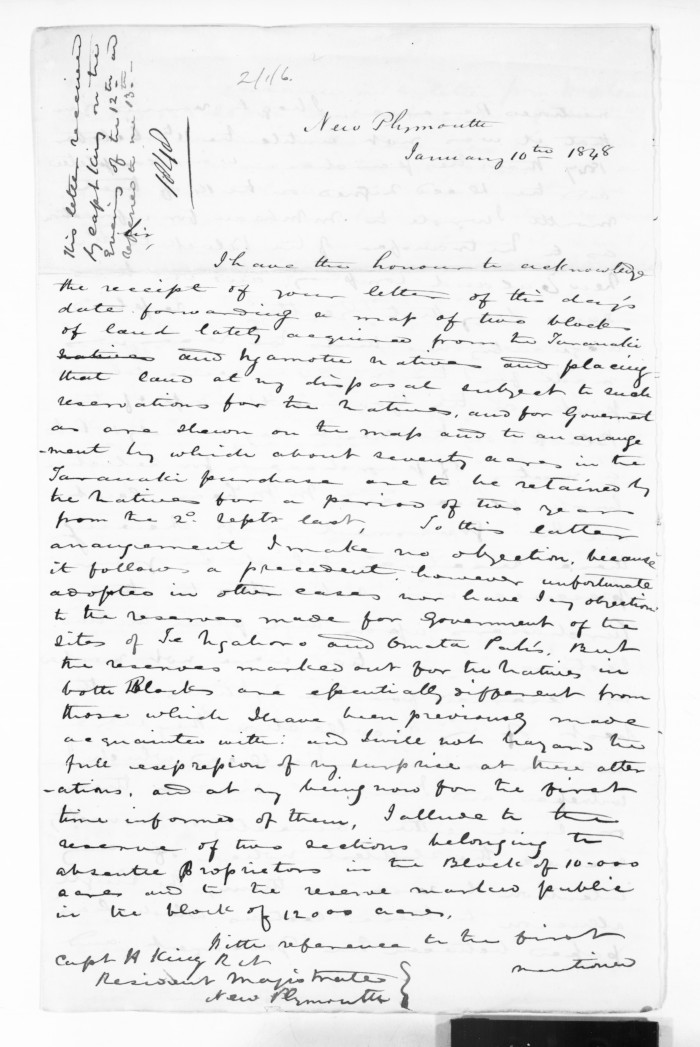 This letter received
by Capt King on the
Evening of the 12th and
1848
2/1/6.
New Plymouth
January 10th 1848
Sir,
I have the honour to acknowledge
the receipt of your letter of this day's
date forwarding a map of two blocks
of land lately acquired from the Taranaki
natives and Ngamotu natives and placing
that land at my disposal subject to such
reservations for the Natives, and for Governmt
as are shewn on the map and to an arrange
-ment by which about seventy acres in the
Taranaki purchase are to be retained by
the Natives for a period of two years
from the 2d. Septr last, To this latter
arrangement I make no objection, because
it follows a precedent, however unfortunate
adopted in other cases nor have I any objection
to the reserves made for Government of the
sites of Te Ngahoro and Omata Pahs, But
the reserves marked out for the Natives in
both Blocks are essentially different from
those which I have been previously made
acquainted with: and I will not hazard the
full expression of my surprise at these alter
-ations, and at my being now for the first
time informed of them, I allude to the
reserve of two sections belonging to
absentee Proprietors in the Block of 10.000
acres and to the reserve marked public
in the block of 12000 acres.
With reference to the first
mentioned
Capt H King R.N
Resident Magistrate
New Plymouth